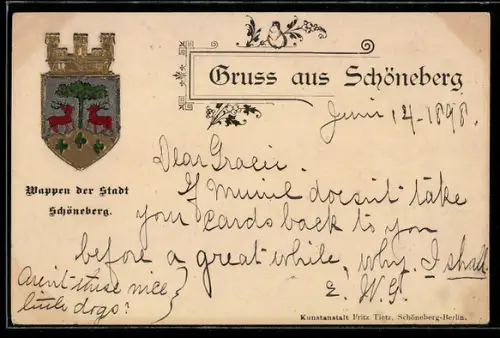 Gruss aus Schöneberg
Juni 14-1898.
Wappen der Stadt
Schöneberg.
Dear Gracie.
If Muriel doesn't take
your cards back to you
before a great while, why I shall.
E. W. G.
Aren't these nice
little dogs?
Kunstanstalt Fritz Tietz, Schöneberg-Berlin.